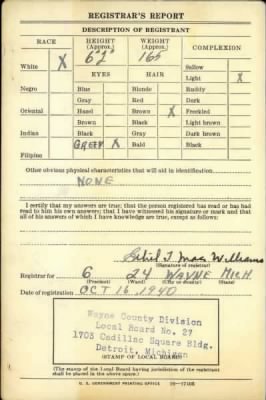 REGISTRAR'S REPORT
DESCRIPTION OF REGISTRANT
RACE HEIGHT (Approx.) WEIGHT (Approx.) COMPLEXION
6'2" 165
White X Sallow
EYES HAIR Light X
Negro Blue Blonde Ruddy
Gray Red Dark
Oriental Hazel Brown X Freckled
Brown Black Light brown
Indian Black Gray Dark brown
GREEN X Bald Black
Filipino
Other obvious physical characteristics that will aid in identification
NONE
I certify that my answers are true; that the person registered has read or has had
read to him his own answers; that I have witnessed his signature or mark and that
all of his answers of which I have knowledge are true, except as follows:
Sibil T Mac Williams
(Signature of registrar)
Registrar for 6 24 WAYNE MICH
(Precinct) (Ward) (City or county) (State)
Date of registration OCT 16 1940
Wayne County Division
Local Board No. 27
1703 Cadillac Square Bldg.
Detroit, Michigan
(STAMP OF LOCAL BOARD)
(The stamp of the Local Board having jurisdiction of the registrant
shall be placed in the above space.)
U. S. GOVERNMENT PRINTING OFFICE 16—17105